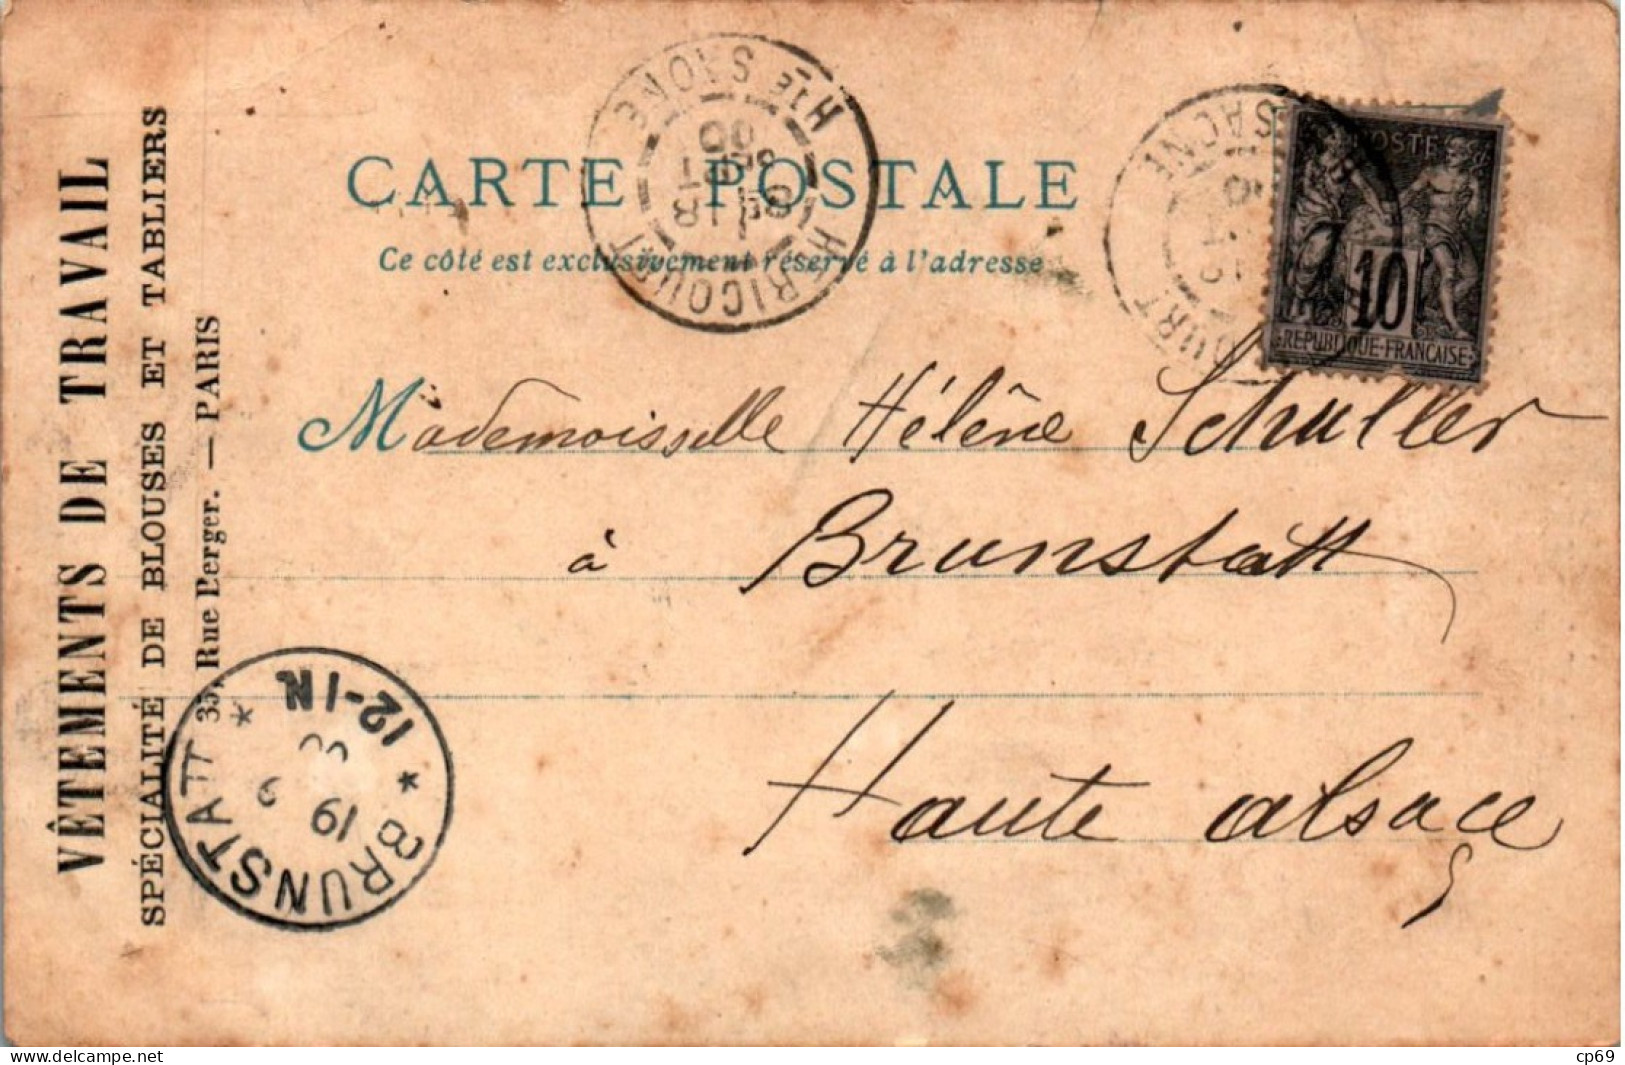 VÊTEMENTS DE TRAVAIL
SPÉCIALITÉ DE BLOUSES ET TABLIERS
35, Rue Berger. — PARIS
CARTE POSTALE
Ce côté est exclusivement réservé à l'adresse
HÉRICOURT
HTE SAÔNE
8E 18
SEPT
00
OURT
SAONE
POSTE
10
REPUBLIQUE-FRANCAISE
Mademoiselle Hélêne Schuller
à Brunstatt
Haute alsace
* BRUNSTATT *
19 9
00
12-1N
www.delcampe.net
cp69